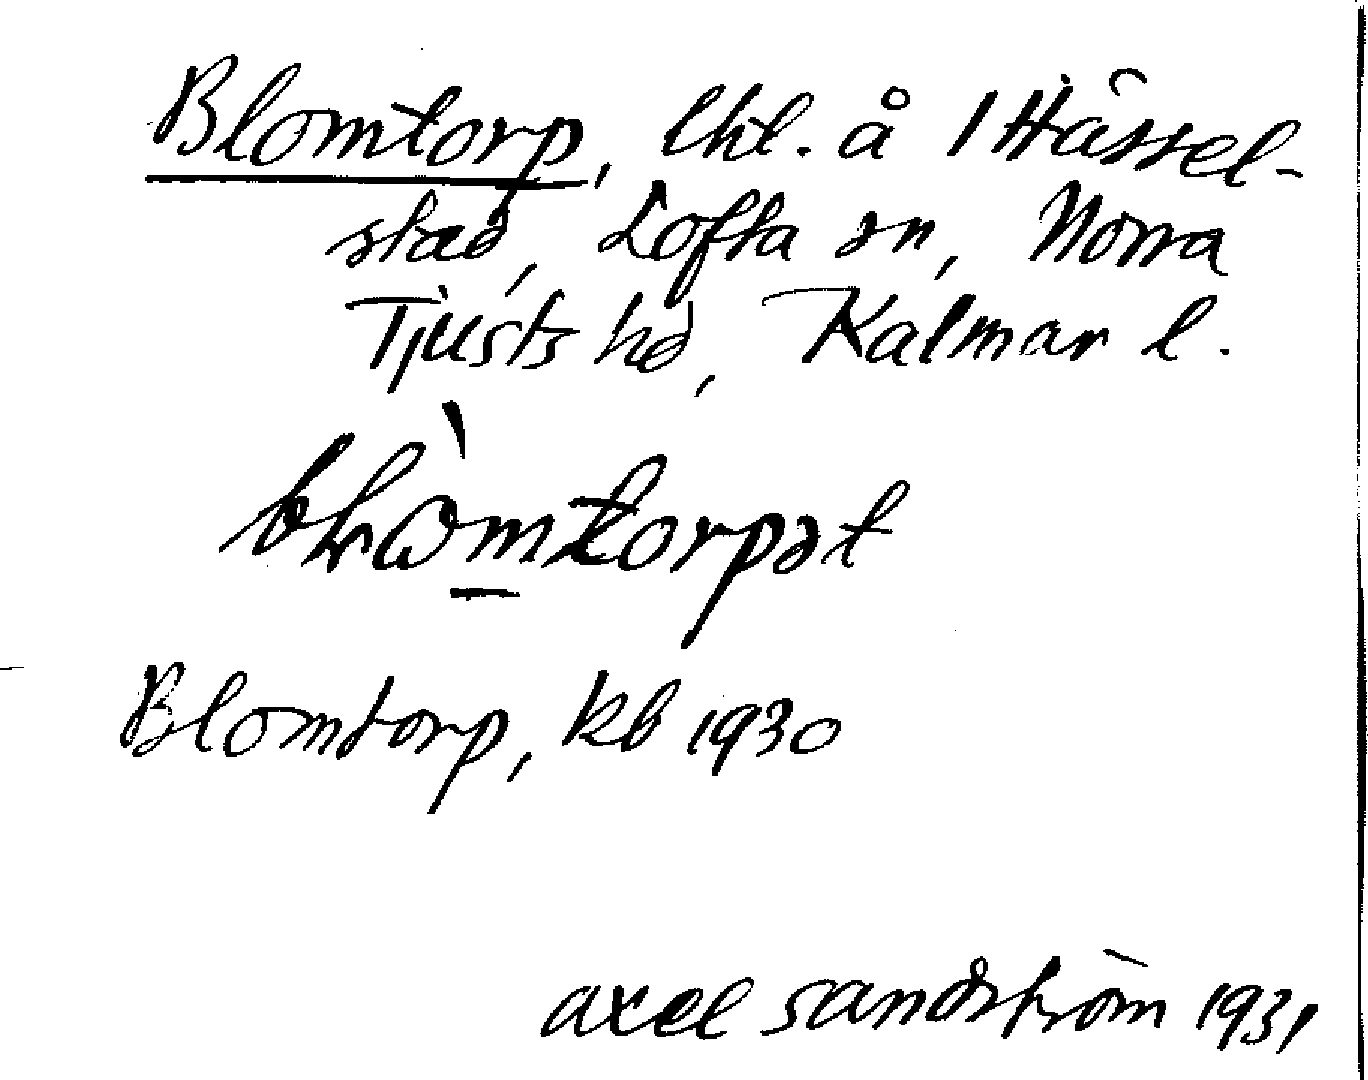 Blomtorp, lht. å 1 Hässel-
stad, Lofta sn, Norra
Tjusts hd, Kalmar l.
Blomtorp, kb 1930
axel sandström 1931